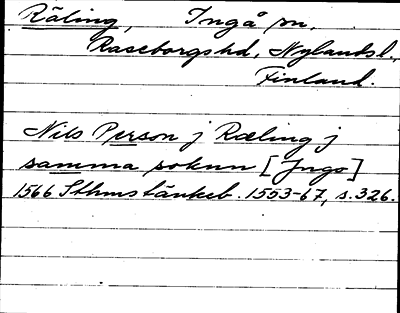 Räling, Ingå sn,
Raseborgs hd, Nylandsl.,
Finland.
Nils Person j Ræling j
samma soknn [Jngo]
1566 Sthms tänkeb. 1553-67, s. 326.